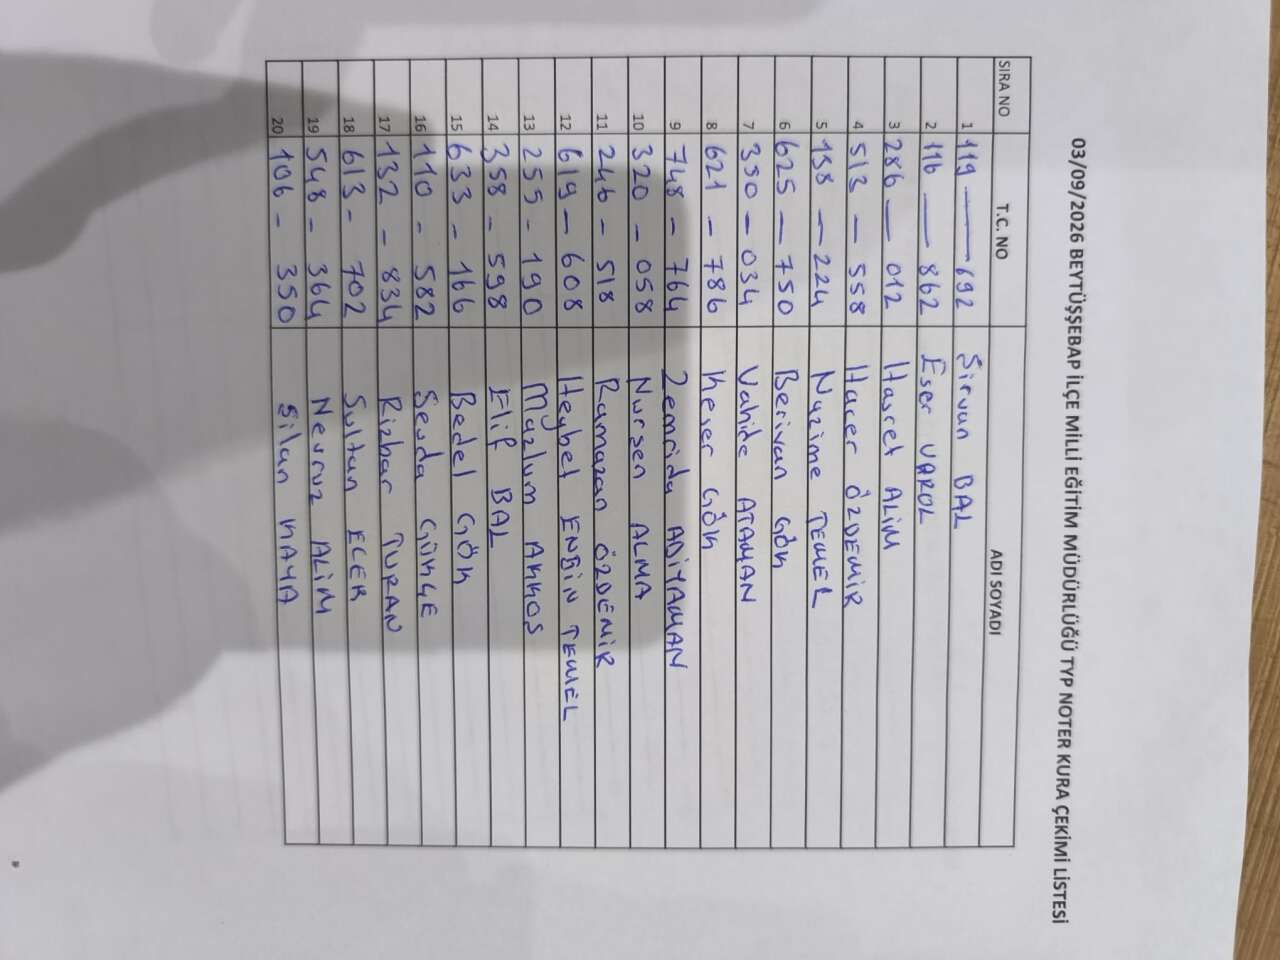 03/09/2026 BEYTÜŞŞEBAP İLÇE MİLLİ EĞİTİM MÜDÜRLÜĞÜ TYP NOTER KURA ÇEKİMİ LİSTESİ
SIRA NO T.C. NO ADI SOYADI
1 119 — 692 Şirvan BAL
2 116 — 862 Eser VAROL
3 286 — 012 Hasret ALİM
4 513 — 558 Hacer ÖZDEMİR
5 158 — 224 Nazime TEMEL
6 625 — 750 Berivan GÖK
7 350 — 034 Vahide ATAMAN
8 621 - 786 Keser GÖK
9 748 - 764 Zemrida ADIYAMAN
10 320 - 058 Nursen ALMA
11 246 - 518 Ramazan ÖZDEMİR
12 619 - 608 Heybet ENGİN TEMEL
13 255 - 190 Mazlum AKKOŞ
14 358 - 598 Elif BAL
15 633 - 166 Bedel GÖK
16 110 - 582 Sevda GÜKÇE
17 132 - 834 Rizbar TURAN
18 613 - 702 Sultan ECER
19 548 - 364 Nevruz ALİM
20 106 - 350 Silan KAYA